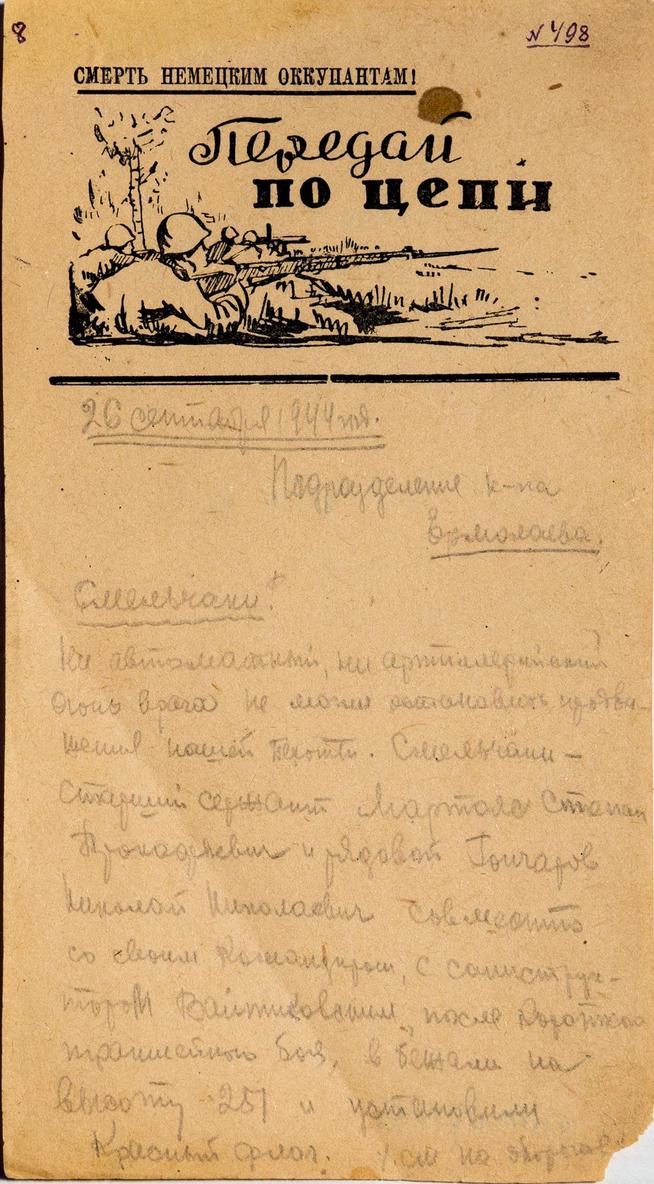 8
N 498
СМЕРТЬ НЕМЕЦКИМ ОККУПАНТАМ!
Передай
по цепи
26 сентября 1944 год.
Подразделение к-на
Ермолаева.
Смельчаки!
Ни автоматный, ни артиллерийский
огонь врага не может остановить продви-
жения нашей пехоты. Смельчаки –
старший сержант Степан
и рядовой Гончаров
Николай Николаевич совместно
со своим командиром, с санинструк-
тором после короткого
траншейного боя, вбежали на
высоту 251 и установили
Красный флаг. / см на обороте /